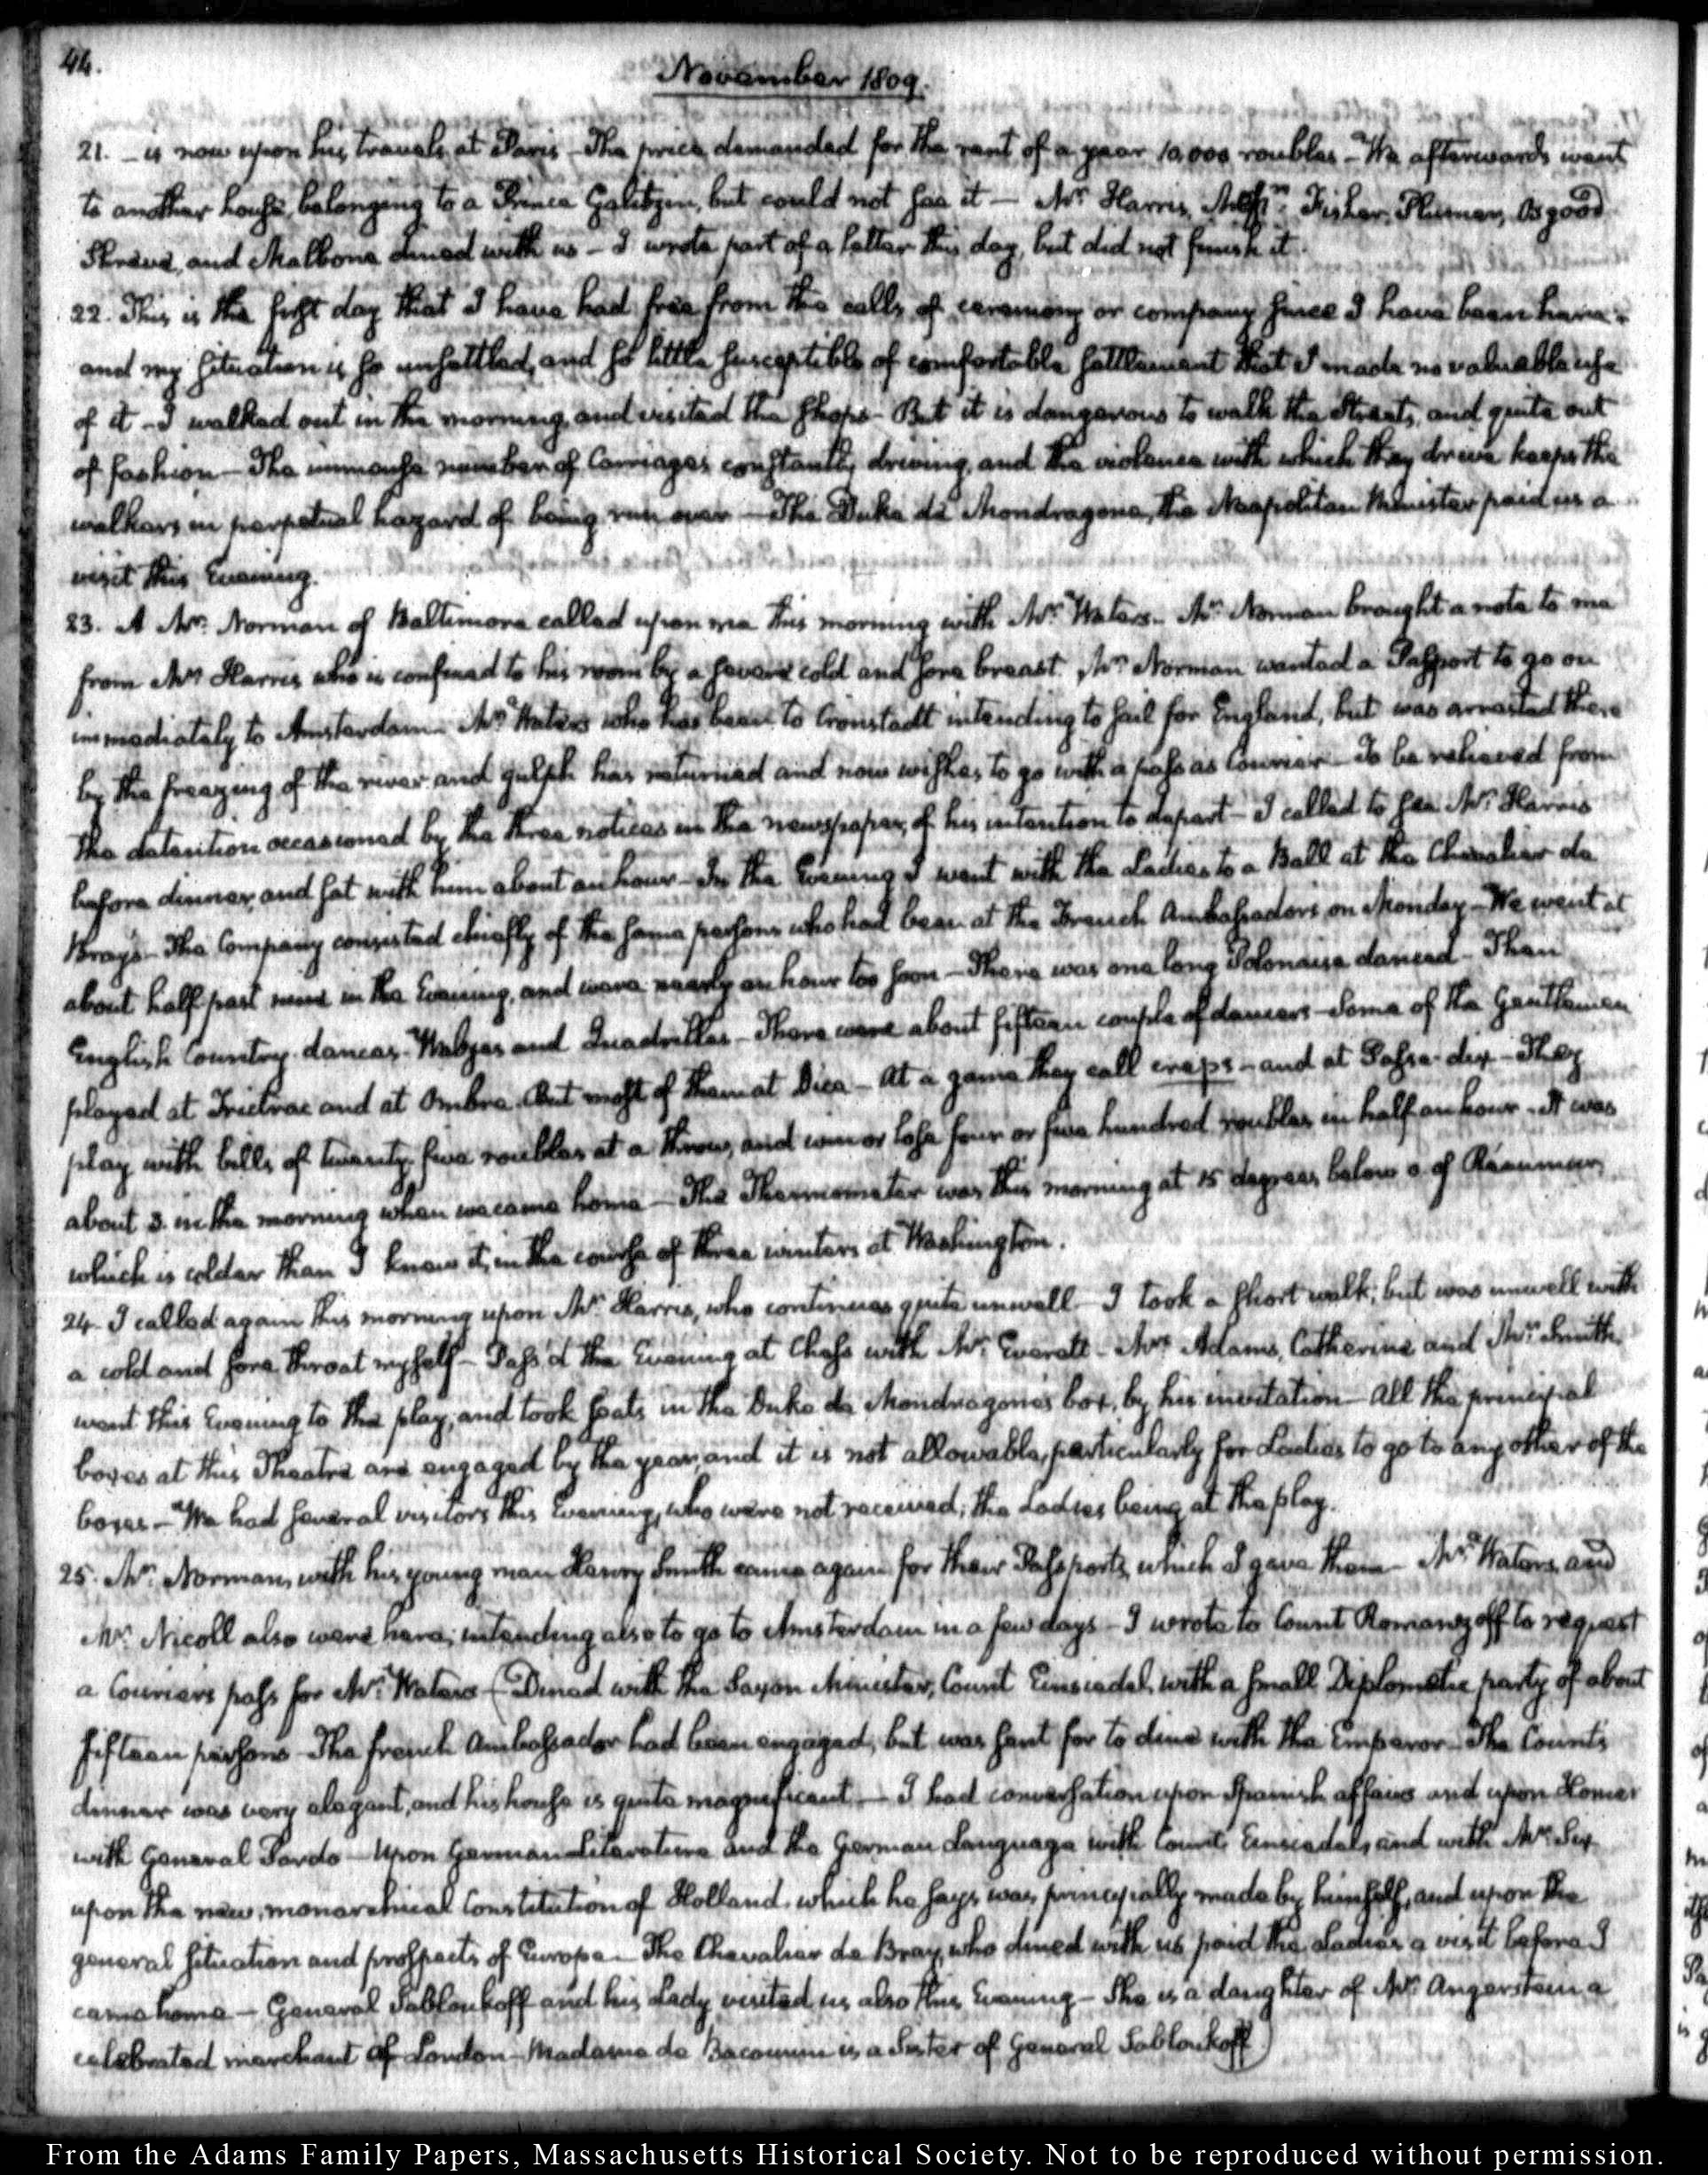 44.
November 1809.
21. – is now upon his travels at Paris – The price demanded for the rent of a year 10,000 roubles – We afterwards went
to another house, belonging to a Prince Galitzin, but could not see it – Mr. Harris, Messrs. Fisher, Plumer, Osgood
Shreve, and Malbone dined with us – I wrote part of a letter this day, but did not finish it.
22. This is the first day that I have had free from the calls of ceremony or company since I have been here:
and my situation is so unsettled, and so little susceptible of comfortable settlement that I made no valuable use
of it – I walked out in the morning, and visited the shops – But it is dangerous to walk the Streets, and quite out
of fashion – The immense number of Carriages constantly driving, and the violence with which they drive keeps the
walkers in perpetual hazard of being run over – The Duke de Mondragone, the Neapolitan Minister paid us a
visit this Evening.
23. A Mr. Norman of Baltimore called upon me this morning with Mr. Waters – Mr. Norman brought a note to me
from Mr. Harris who is confined to his room by a severe cold and sore breast. Mr. Norman wanted a Passport to go on
immediately to Amsterdam – Mr. Waters who has been to Cronstadt intending to sail for England, but was arrested there
by the freezing of the river and gulph has returned and now wishes to go with a pass as Courier – To be relieved from
the detention occasioned by the three notices in the newspaper, of his intention to depart – I called to see Mr. Harris
before dinner, and sat with him about an hour – In the Evening I went with the Ladies to a Ball at the Chevalier de
Bray's – The Company consisted chiefly of the same persons who had been at the French Ambassadors on Monday – We went at
about half past nine in the Evening, and were nearly an hour too soon – There was one long Polonaise danced – Then
English Country dances – Walzes and Quadrilles – There were about fifteen couple of dancers – Some of the Gentlemen
played at Trictrac and at Ombre. But most of them at Dice – At a game they call craps – and at Passe-dix – They
play with bills of twenty-five roubles at a throw, and win or lose four or five hundred roubles in half an hour – It was
about 3. in the morning when we came home – The Thermometer was this morning at 15 degrees below 0 of Reaumur,
which is colder than I knew it, in the course of three winters at Washington.
24. I called again this morning upon Mr. Harris, who continues quite unwell – I took a short walk; but was unwell with
a cold and sore throat myself – Pass'd the Evening at Chess with Mr. Everett – Mrs. Adams, Catherine and Mr. Smith,
went this Evening to the play, and took seats in the Duke de Mondragone's box, by his invitation – All the principal
boxes at this Theatre are engaged by the year, and it is not allowable, particularly for Ladies to go to any other of the
boxes – We had several visitors this Evening, who were not received; the Ladies being at the play.
25. Mr. Norman, with his young man Henry Smith came again for their Passports, which I gave them – Mr. Waters, and
Mr. Nicoll also were here; intending also to go to Amsterdam in a few days – I wrote to Count Romanzoff to request
a Couriers pass for Mr. Waters – (Dined with the Saxon Minister, Count Einsiedel, with a small Diplomatic party of about
fifteen persons – The french Ambassador had been engaged, but was sent for to dine with the Emperor – The Counts
dinner was very elegant, and his house is quite magnificent – I had conversation upon Spanish affairs and upon Homer
with General Pardo – Upon German Literature and the German Language with Count Einsiedel, and with Mr. Six
upon the new, monarchical Constitution of Holland, which he says was principally made by himself, and upon the
general situation and prospects of Europe – The Chevalier de Bray, who dined with us paid the Ladies a visit before I
came home – General Sabloukoff and his Lady visited us also this Evening – She is a daughter of Mr. Angerstein a
celebrated merchant of London – Madame de Bacounin is a Sister of General Sabloukoff)
From the Adams Family Papers, Massachusetts Historical Society. Not to be reproduced without permission.